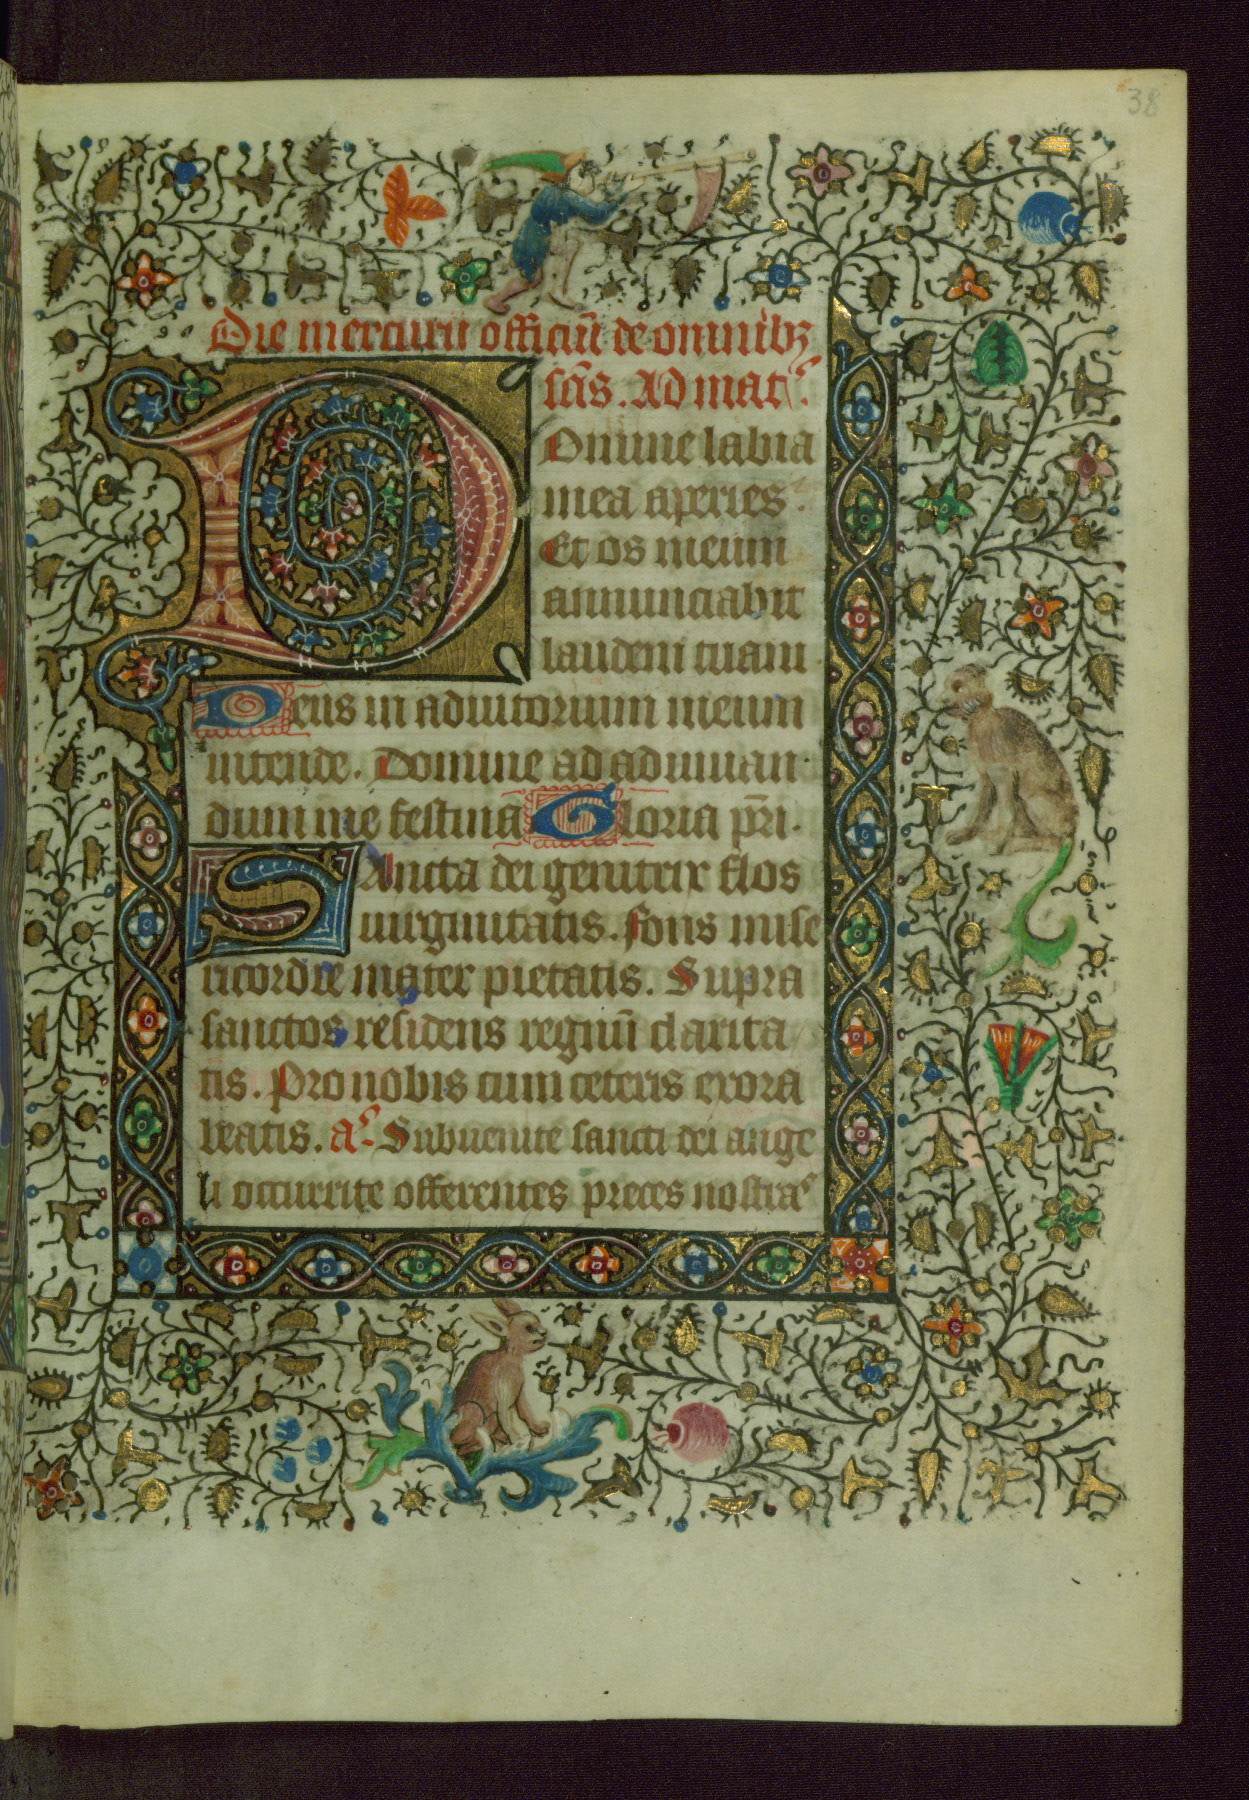 38
Die mercurii officiū de omnibꝫ
scīs. Ad matˢ.
Domine labia
mea aperies.
Et os meum
annunciabit
laudem tuam
Deus in adiutorium meum
intende. Domine ad adiuuan
dum me festina Gloria pr̄i.
SAncta dei genitrix flos
uirginitatis. fons mise
ricordie mater pietatis. Supra
sanctos residens regnū clarita
tis. Pro nobis cum ceteris exora
beatis. aˢ. Subuenite sancti dei ange
li occurrite offerentes preces nostraˢ